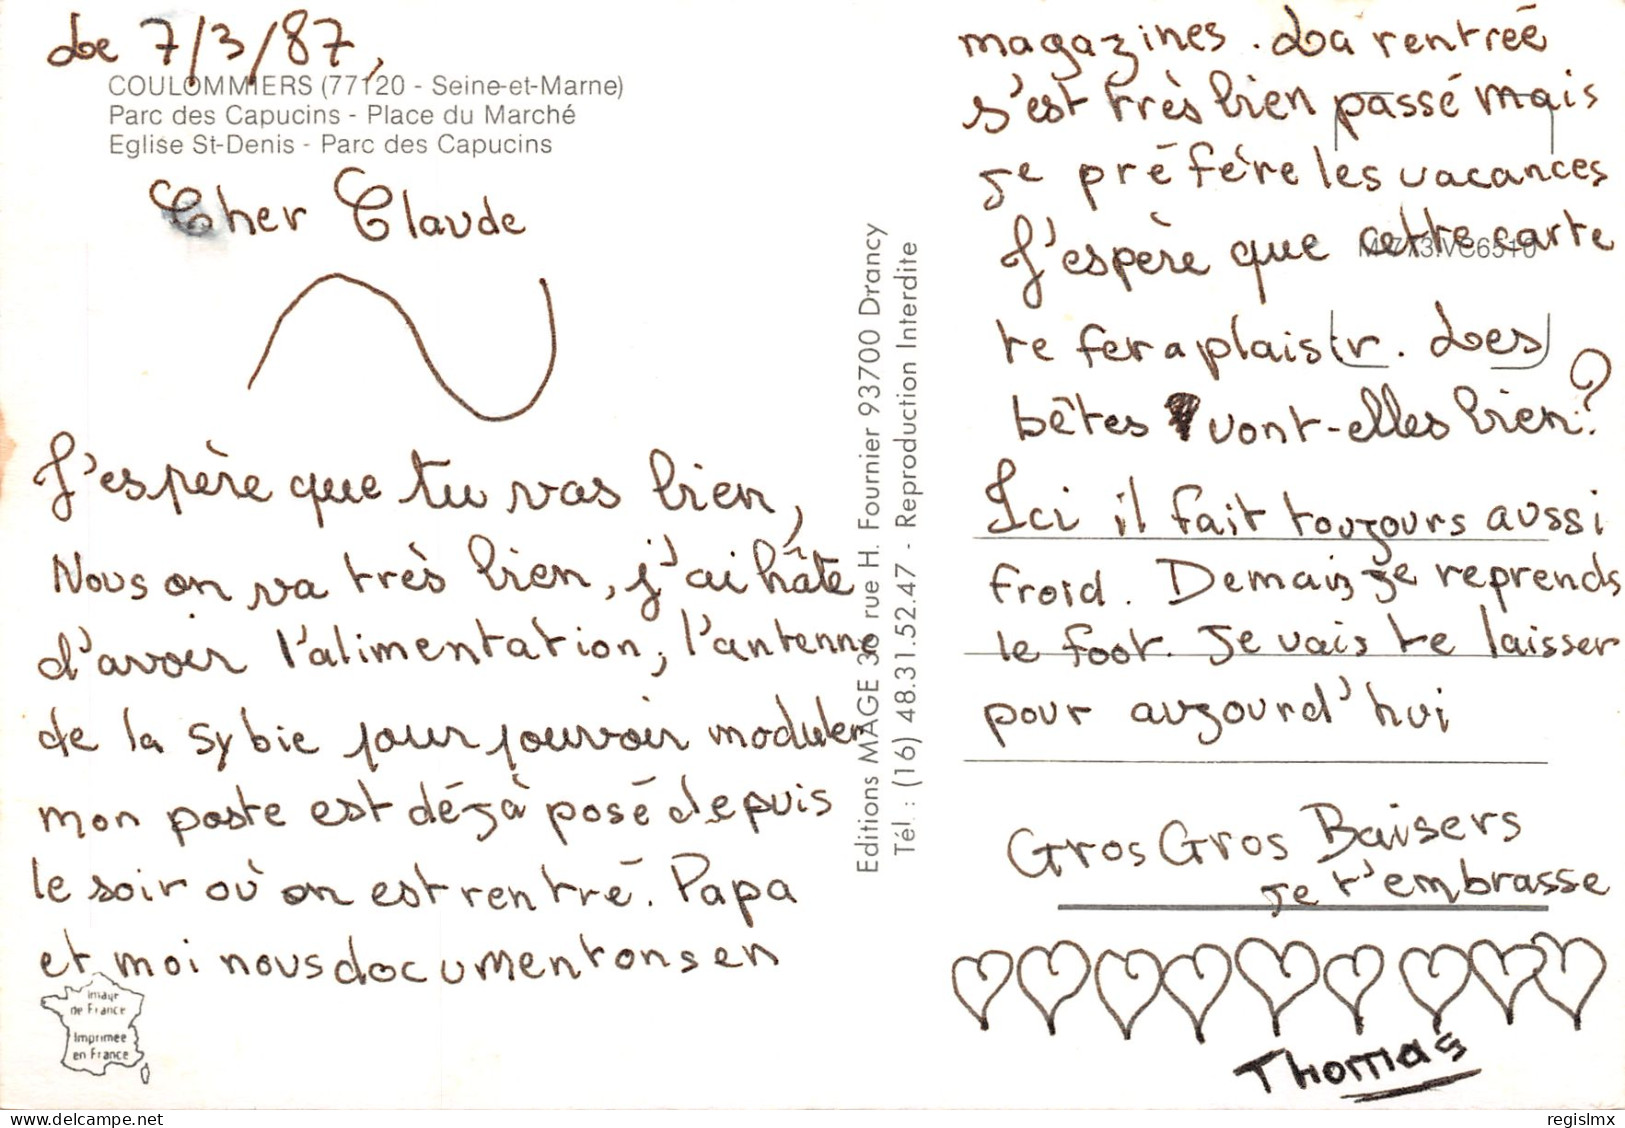 Le 7/3/87,
COULOMMIERS (77120 - Seine-et-Marne)
Parc des Capucins - Place du Marché
Eglise St-Denis - Parc des Capucins
Cher Claude
J'espère que tu vas bien,
Nous on va très bien, j'ai hâte
d'avoir l'alimentation, l'antenne
de la sybie pour pouvoir moduler
mon poste est déjà posé depuis
le soir où on est rentré. Papa
et moi nous documentons en
Image
de France
Imprimée
en France
Editions MAGE 36 rue H. Fournier 93700 Drancy
Tél. : (16) 48.31.52.47 - Reproduction Interdite
magazines. La rentrée
s'est très bien passé mais
je préfère les vacances
J'espère que cette carte
te fera plaisir. Les
bêtes vont-elles bien?
Ici il fait toujours aussi
froid. Demain je reprends
le foot. Je vais te laisser
pour aujourd'hui
Gros Gros Baisers
Je t'embrasse
Thomas
delcampe.net
regislmx